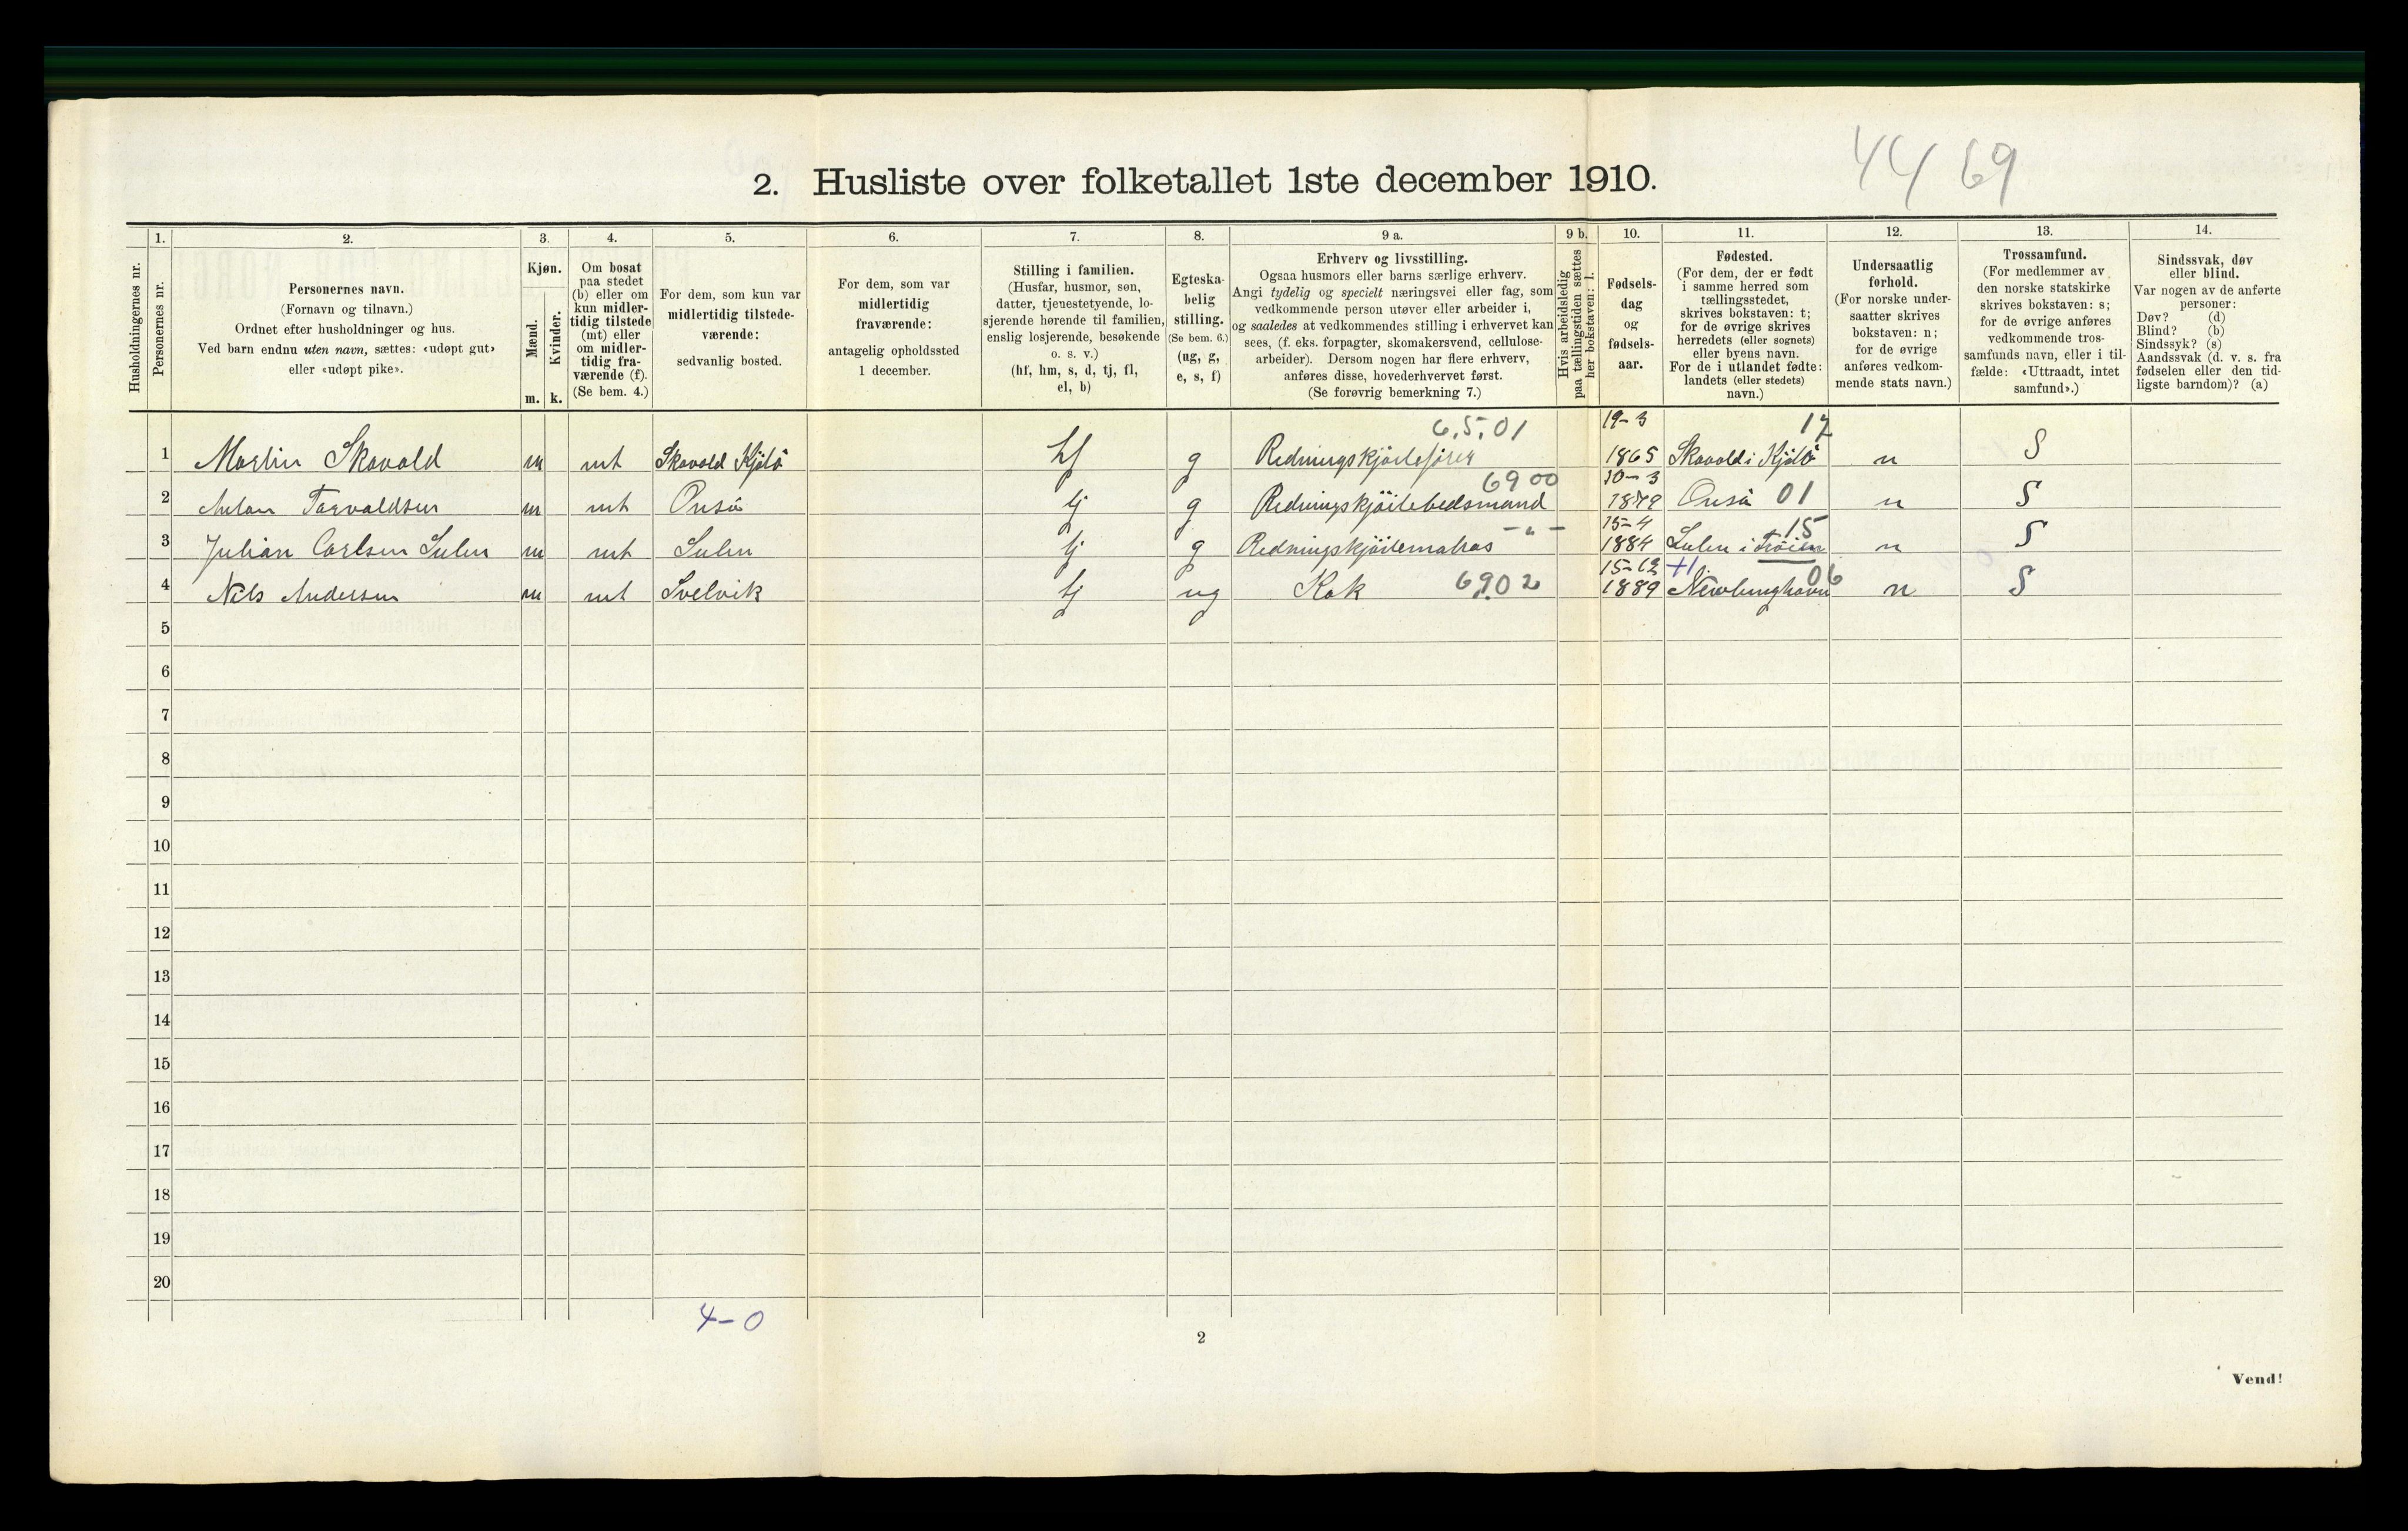 44 69
2. Husliste over folketallet 1ste december 1910.
Husholdningernes nr.
1. Personernes nr.
2. Personernes navn.
(Fornavn og tilnavn.)
Ordnet efter husholdninger og hus.
Ved barn endnu uten navn, sættes: «udøpt gut»
eller «udøpt pike».
3. Kjøn.
Mænd. m.
Kvinder. k.
4. Om bosat
paa stedet
(b) eller om
kun midler-
tidig tilstede
(mt) eller
om midler-
tidig fra-
værende (f).
(Se bem. 4.)
5. For dem, som kun var
midlertidig tilstede-
værende:
sedvanlig bosted.
6. For dem, som var
midlertidig
fraværende:
antagelig opholdssted
1 december.
7. Stilling i familien.
(Husfar, husmor, søn,
datter, tjenestetyende, lo-
sjerende hørende til familien,
enslig losjerende, besøkende
o. s. v.)
(hf, hm, s, d, tj, fl,
el, b)
8. Egteska-
belig
stilling.
(Se bem. 6.)
(ug, g,
e, s, f)
9 a. Erhverv og livsstilling.
Ogsaa husmors eller barns særlige erhverv.
Angi tydelig og specielt næringsvei eller fag, som
vedkommende person utøver eller arbeider i,
og saaledes at vedkommendes stilling i erhvervet kan
sees, (f. eks. forpagter, skomakersvend, cellulose-
arbeider). Dersom nogen har flere erhverv,
anføres disse, hovederhvervet først.
(Se forøvrig bemerkning 7.)
9 b. Hvis arbeidsledig
paa tællingstiden sættes
her bokstaven: l.
10. Fødsels-
dag
og
fødsels-
aar.
11. Fødested.
(For dem, der er født
i samme herred som
tællingsstedet,
skrives bokstaven: t;
for de øvrige skrives
herredets (eller sognets)
eller byens navn.
For de i utlandet fødte:
landets (eller stedets)
navn.)
12. Undersaatlig
forhold.
(For norske under-
saatter skrives
bokstaven: n;
for de øvrige
anføres vedkom-
mende stats navn.)
13. Trossamfund.
(For medlemmer av
den norske statskirke
skrives bokstaven: s;
for de øvrige anføres
vedkommende tros-
samfunds navn, eller i til-
fælde: «Uttraadt, intet
samfund».)
14. Sindssvak, døv
eller blind.
Var nogen av de anførte
personer:
Døv? (d)
Blind? (b)
Sindssyk? (s)
Aandssvak (d. v. s. fra
fødselen eller den tid-
ligste barndom)? (a)
6.5.01 19-3 17
1 Martin Skavold m mt Skavold Kjölö hf g Redningskjöitefører 1865 Skavold i Kjölö n S
6900 10-3
2 Anton Torvaldsen m mt Onsö tj g Redningskjöitebedsmand 1879 Onsö 01 n S
-"- 15-4 15
3 Julian Carlsen Sulen m mt Sulen tj g Redningskjöitematros 1884 Sulen i n S
15-12 +1
4 Nils Andersen m mt Svelvik tj ug Kok 6902 1889 06 n S
5
6
7
8
9
10
11
12
13
14
15
16
17
18
19
20
4-0
2
Vend!